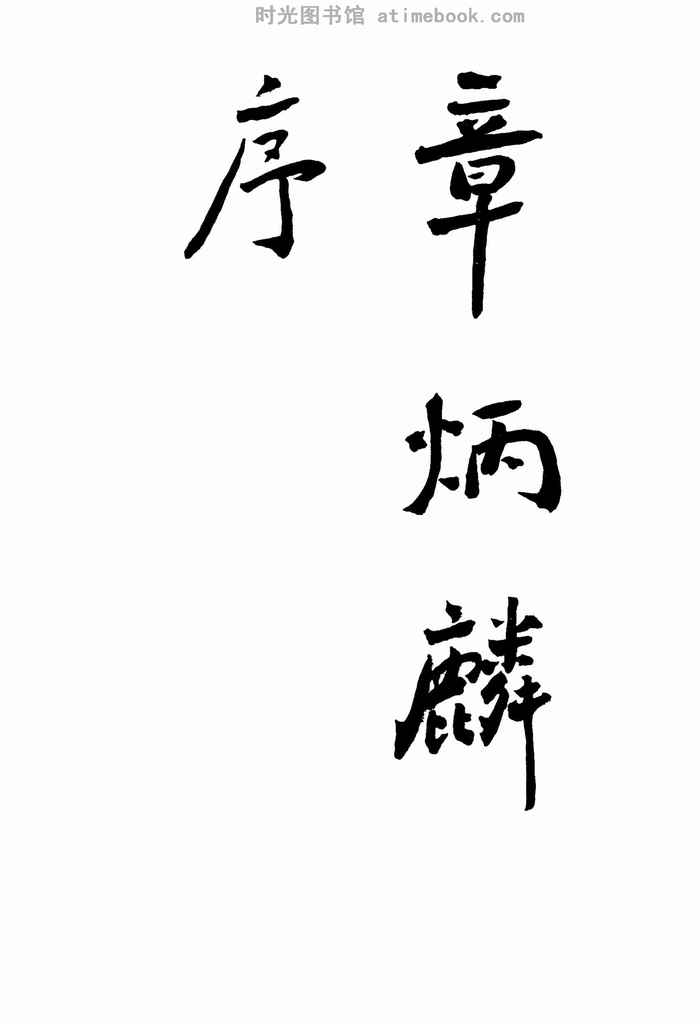 时光图书馆 atimebook.com
章炳麟
序